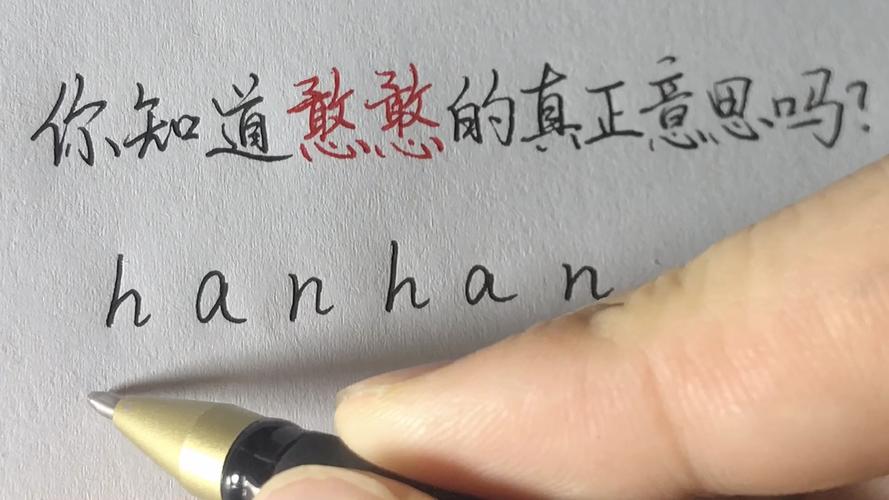 你知道憨憨的真正意思吗?
hanhan